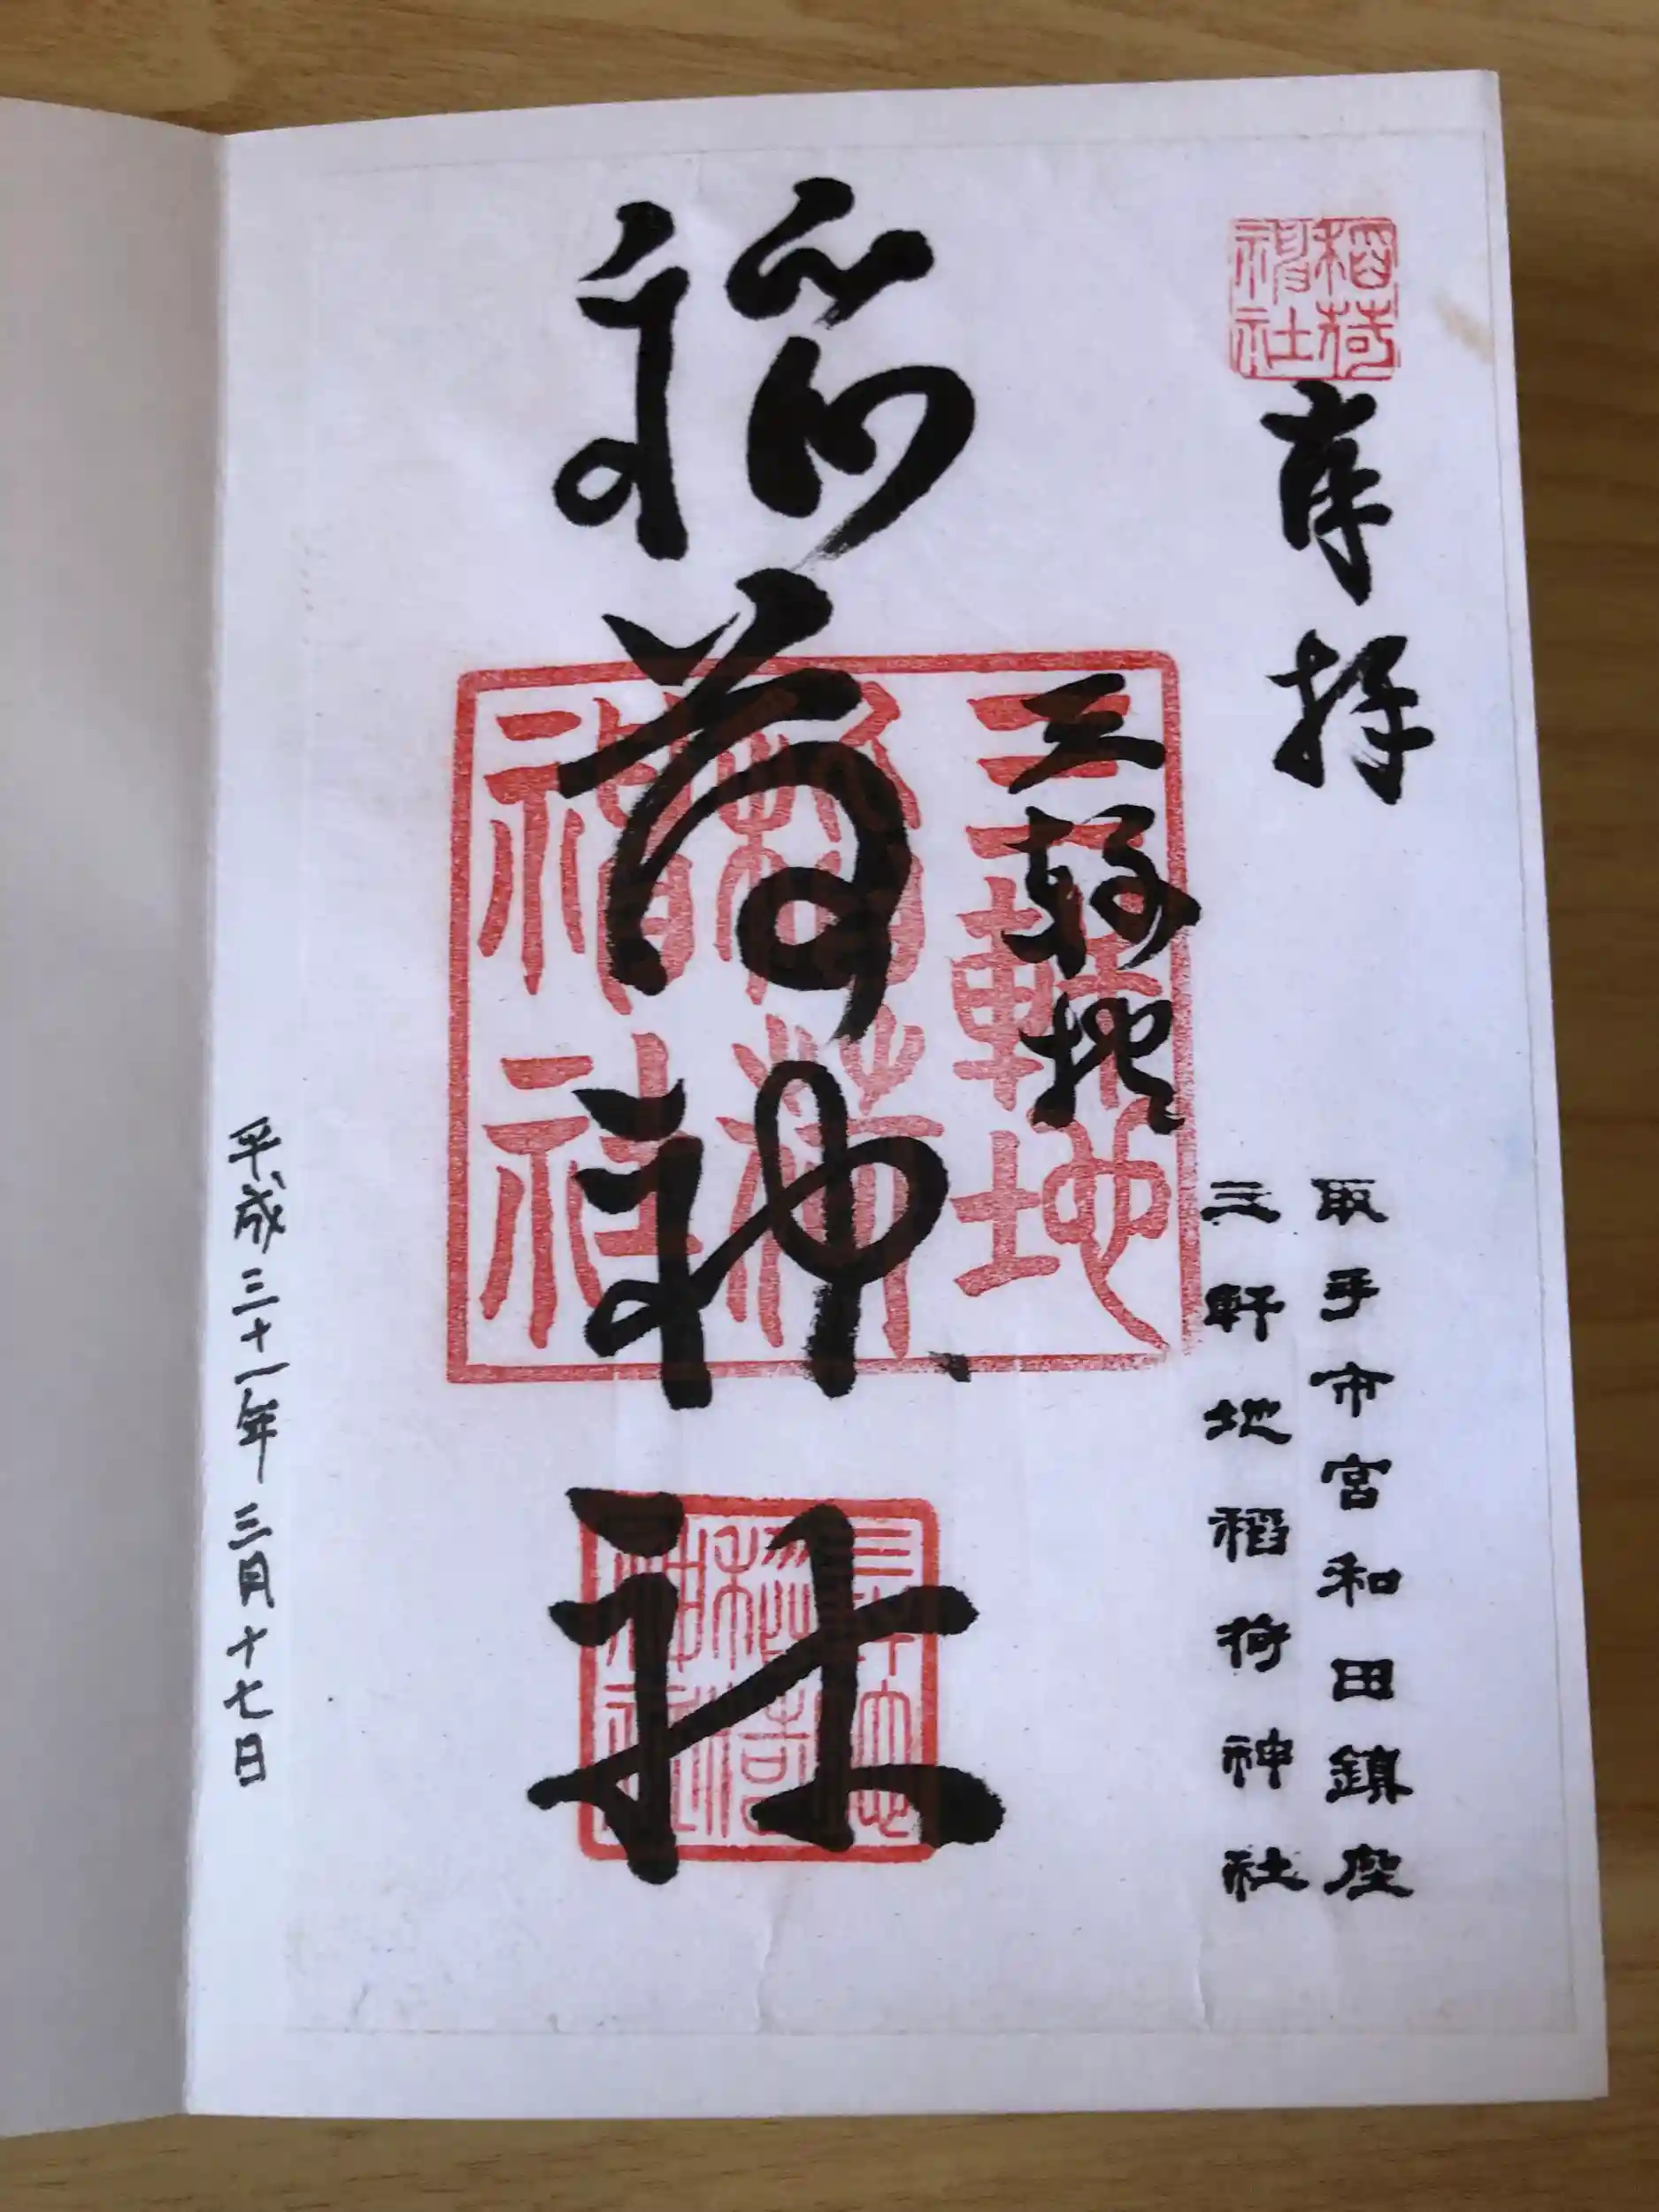 稲荷
神社
奉拝
取手市宮和田鎮座
三軒地稲荷神社
三軒地
稲荷神社
三軒地
稲荷
神社
平成三十一年三月十七日